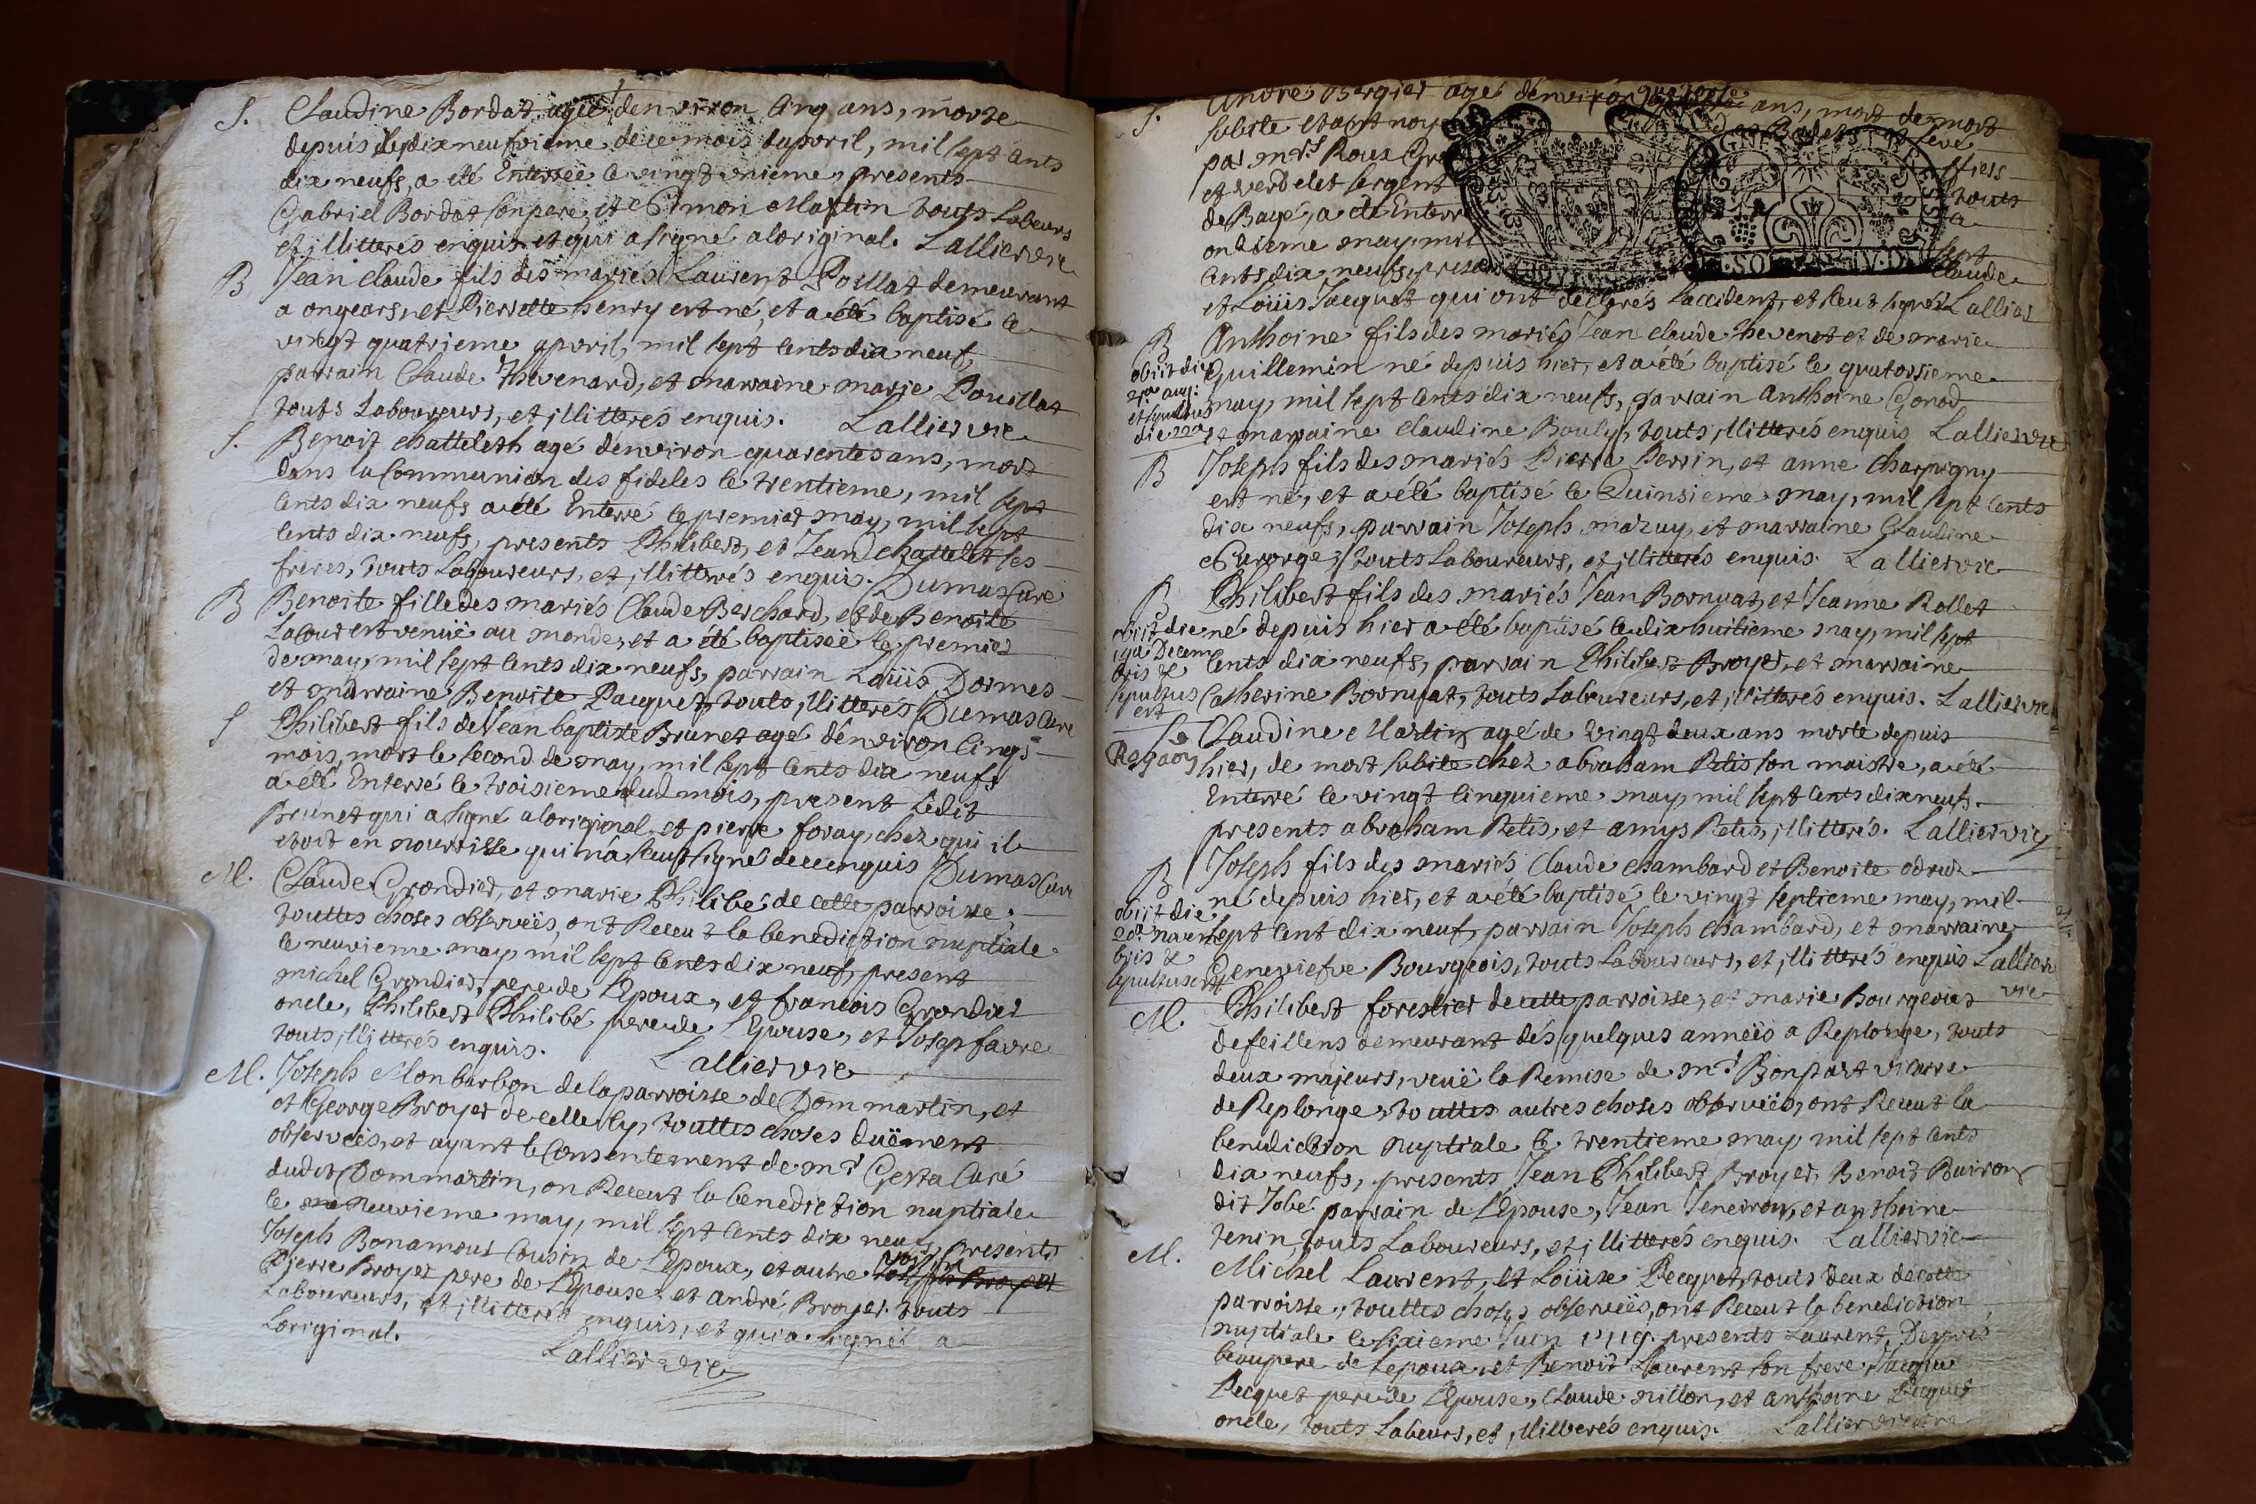 S. Claudine Bordat agée denviron cinq ans, morte
depuis le dix neufvieme de ce mois d'apvril, mil sept cents
dix neufs, a été Enterreé le vingt unieme, presents
Gabriel Bordat son pere, et Esmon Martin touts Labeurs
et illitterés enquis et qui a signé a loriginal. Lallier vic
B Jean Claude fils des mariés Laurent Poillat demeurant
a ongears, et Pierrette henry est né, et a été baptisé le
vingt quatrieme apvril, mil sept cents dix neuf,
parrain Claude Thevenard, et marraine marie Pouillat
touts Laboureurs, et illitterés enquis. Lallier vic
S. Benoit Chatteleth agé denviron quarentes ans, mort
dans la Communion des fideles le trentieme, mil sept
cents dix neufs a été Enterré le premier may, mil sept
cents dix neufs, presents Philibert, et Jean Chattelet ses
freres, touts Laboureurs, et illitterés enquis. Dumas Curé
B Benoite fille des mariés Claude Berchard, et de Benoite
Lacour est venuë au monde, et a été baptiseé le premier
de may, mil sept cents dix neufs, parrain Loüis Dormes
et marraine Benoite Pacquet, touts illitterés Dumas Curé
S Philibert fils de Jean baptiste Brunet agé denviron cinqs
mois, mort le second de may, mil sept cents dix neufs
a été Enterré le troisieme dud mois, present Ledit
Brunet qui a signé a loriginal, et pierre foray, chez qui il
etoit en nourrisse qui n'a sceut signé de ce enquis Dumas Cur
M. Claude Grondier, et marie Philibé de cette parroisse,
touttes choses observeës, ont Receut la benediction nuptiale
le neuvieme may, mil sept cents dix neuf, present
michel Grondier, pere de L'Epoux, et francois Grondier
oncle, Philibert Philibé pere de L'Epouse, et Josep favre
touts illitterés enquis. Lallier vic
M. Joseph Monbarbon de la parroisse de Dommartin, et
et George Broyer de celle cy, touttes choses duëment
observeës, et ayant le Consentement de mr Gesta Curé
dudit Dommartin, on Receut la benediction nuptiale
le neuvieme may, mil sept cents dix neufs, presents
Joseph Bonamour Cousin de L'Epoux, et autre
Pierre Broyer pere de L'Epouse, et andré Broyer touts
Laboureurs, et illitterés enquis, et qui a signé a
Loriginal. Lallier vic
S. André Bergier agé denviron quatorse ans, mort de mort
subite etant noyé
Levé
par mrs Roux
et verdelet sergent
ffiers
touts
de Bagé, a été Enterré
onsieme may, mil
sept
cents dix neufs, presents
Claude
et Loüis Jacquet qui ont declarés Laccident, et sceut signés Lallier
B Anthoine fils des mariés Jean Claude Thevenot et de marie
obiit die
21a aug:
et sepultus
die 22a
Guillemin né depuis hier, et a été baptisé le quatorsieme
may, mil sept cents dix neufs, parrain Anthoine Gonod
et marraine Claudine Bouly, touts illitterés enquis Lallier vic
B Joseph fils des mariés Pierre Perrin, et anne Charpigny
est né, et a été baptisé le Quinsieme may, mil sept cents
dix neufs, parrain Joseph mazuy, et marraine Claudine
George, touts Laboureurs, et illitterés enquis. Lallier vic
B Philibert fils des mariés Jean Bornuat, et Jeanne Rollet
obiit die
19a Decem
bris &
sepultus
est
né depuis hier a été baptisé le dix huitieme may, mil sept
cents dix neufs, parrain Philibert Broyer, et marraine
Catherine Bornuat, touts Laboureurs, et illitterés enquis. Lallier vic
S. Claudine Martin agé de vingt deux ans morte depuis
hier, de mort subite chez abraham Petis son maistre, a été
Enterré le vingt cinquieme may, mil sept cents dix neufs.
presents abraham Petis, et amys Petis, illitterés. Lallier vic
B Joseph fils des mariés Claude Chambard et Benoite odru
obiit die
20a novem
bris &
sepultus est
né depuis hier, et a été baptisé le vingt septieme may, mil
sept cent dix neuf, parrain Joseph Chambard, et marraine
Geneviefve Bourgeois, touts Laboureurs, et illitterés enquis Lallier
vic
M. Philibert forestier de cette parroisse, et marie Bourgeois
de feillens demeurant dés quelques anneës a Replonge, touts
deux majeurs, veuë la Remise de mr Bonpart vicaire
de Replonge, touttes autres choses observeës, ont Receut la
benediction nuptiale le trentieme may, mil sept cents
dix neufs, presents Jean Philibert Broyer, Benoit Buiron
dit Jobé parrain de L'Epouse, Jean Teneiron, et anthoine
tenin, touts Laboureurs, et illitterés enquis. Lallier vic
M. Michel Laurent, et Loüise Pecquet, touts deux de cette
parroisse, touttes choses observeës, ont Receut la benediction
nuptiale le sixieme Juin 1719. presents Laurent Després
beaupere de Lepoux, et Benoit Laurent son frere, Jacque
Pecquet pere de L'Epouse, Claude nillon, et anthoine Pecquet
oncle, touts Labeurs, et illitterés enquis. Lallier vicaire